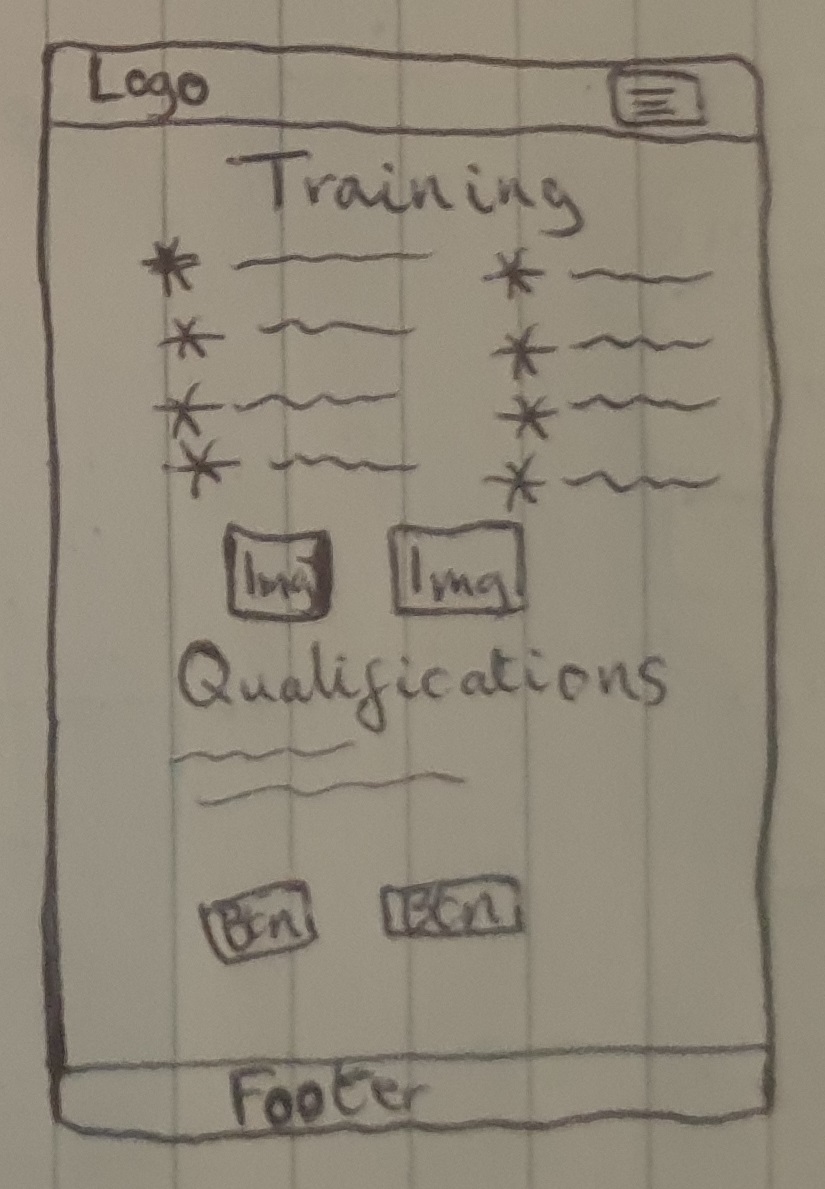 Logo
Training
Img Img
Qualifications
Btn Btn
Footer